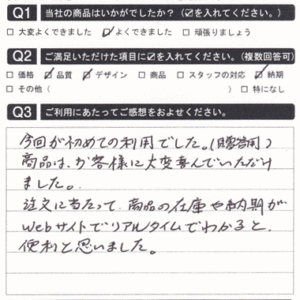 Q1 当社の商品はいかがでしたか?(☑を入れてください。)
□ 大変よくできました ☑ よくできました □ 頑張りましょう
Q2 ご満足いただけた項目に☑を入れてください。(複数回答可)
□ 価格 ☑ 品質 ☑ デザイン □ 商品 □ スタッフの対応 ☑ 納期
□ その他( ) □ 特になし
Q3 ご利用にあたってご感想をおよせください。
今回が初めての利用でした。(贈答用)
商品は、お客様に大変喜んでいただけ
ました。
注文に当たって、商品の在庫や納期が
Webサイトでリアルタイムでわかると、
便利と思いました。